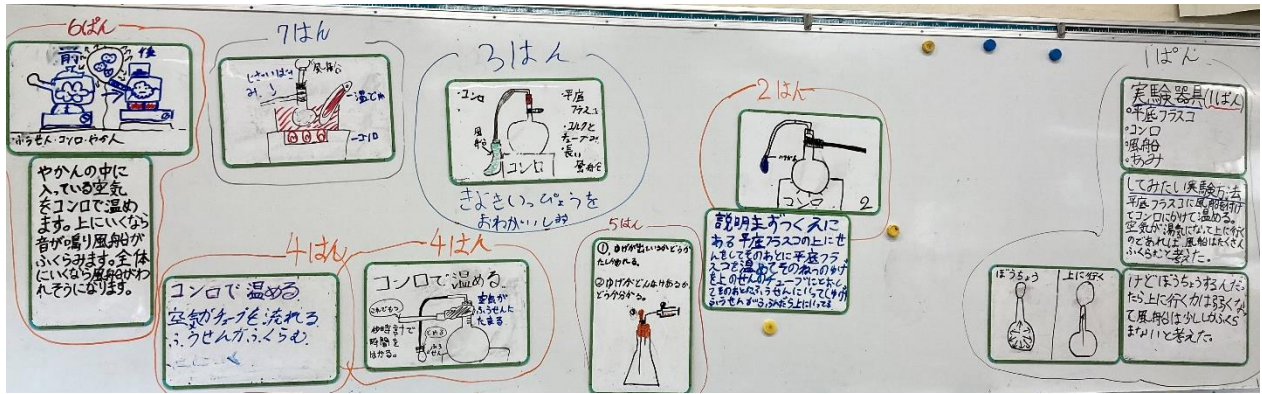 6ぱん
前
後
ふうせん・コンロ・やかん
やかんの中に
入っている空気
をコンロで温め
ます。上にいくなら
音が鳴り風船が
ふくらみます。全体
にいくなら風船がわ
れそうになります。
7はん
風船
コンロ
3ぱん
・コンロ
・平底
フラスコ
・コルクと
チューブ
・長い
風船
風船
コンロ
きよきいっぴょうを
おねがいし
4はん
コンロで温める
空気がチューブを流れる
ふうせんがふくらむ
4はん
コンロで温める
空気が
ふうせんに
たまる
時計で
時間を
はかる。
5はん
①、ゆげが出るいつかどうか
たしかめる。
②ゆげがどんなけあるか
どうか分かる。
2はん
コンロ
2
説明まずつくえに
ある平底フラスコの上にせ
んをしてそのあとに平底フラ
スコを温めてそのねつのゆげ
を上のせんのチューブにとおし
てそのあとに
1ぱん
実験器具(1ぱん)
・平底フラスコ
・コンロ
・風船
・あみ
してみたい実験方法
平底フラスコに風船を付け
てコンロにかけて温める。
空気が湯気になって上に行く
のであれば、風船はたくさん
ふくらむと考えた。
ぼうちょう
上に行く
けどぼうちょうするんだっ
たら上に行く力は弱くなっ
て風船は少ししかふくら
まないと考えた。